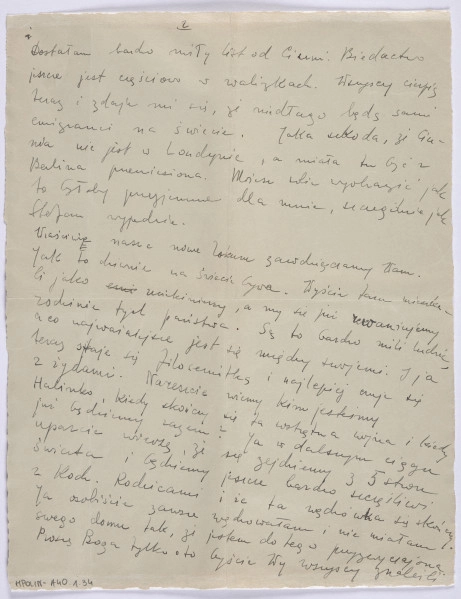 2
Dostałam bardzo miły list od Cieuni. Biedactwo
jeszcze jest częściowo w walizkach. Wszyscy cierpią
teraz i zdaje mi się, że niedługo będą sami
emigranci na świecie. Jaka szkoda, że Cie-
nia nie jest w Londynie, a miała tu być z
Berlina przeniesiona. Możesz sobie wyobrazić jak
to byłoby przyjemne dla mnie, szczególnie jak
Stefan wyjedzie.
Właściwie nasze nowe zawdzięczamy Wam.
Jak to dziwnie na świecie bywa. Wyście tam mieszka-
li jako a my się już
rodzinie tych państwa. Są to bardzo mili ludzie,
a co najważniejsze jest się między swojemi. I ja
teraz staję się filosemitką i najlepiej czuję się
z żydami. Nareszcie wiemy kim jesteśmy
Halinko, kiedy skończy się ta wstrętna wojna i kiedy
już będziemy razem? Ja w dalszym ciągu
uparcie wierzę, że się zejdziemy z 5 stron
świata i będziemy jeszcze bardzo szczęśliwi
z Koch. Rodzicami i że ta wędrówka się skończy.
Ja osobiście zawsze wędrowałam i nie miałam
swego domu tak, że jestem do tego przyzwyczajona.
Proszę Boga tylko o to byście Wy wszyscy znaleźli
MPOLIN-A40 1.34